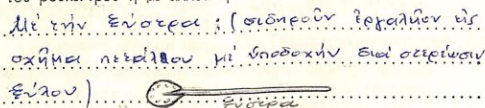 Μέ τήν ξύστρα : (σιδηροῦν ἐργαλῆον εἰς
σχῆμα πετάλου μέ ὑποδοχήν διά στερέωσιν
ξύλου)
ξύστρα